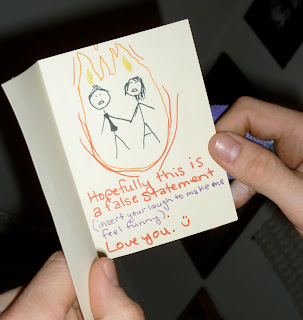 Hopefully this is
a false statement
(insert your laugh to make me
feel funny).
Love you. :)